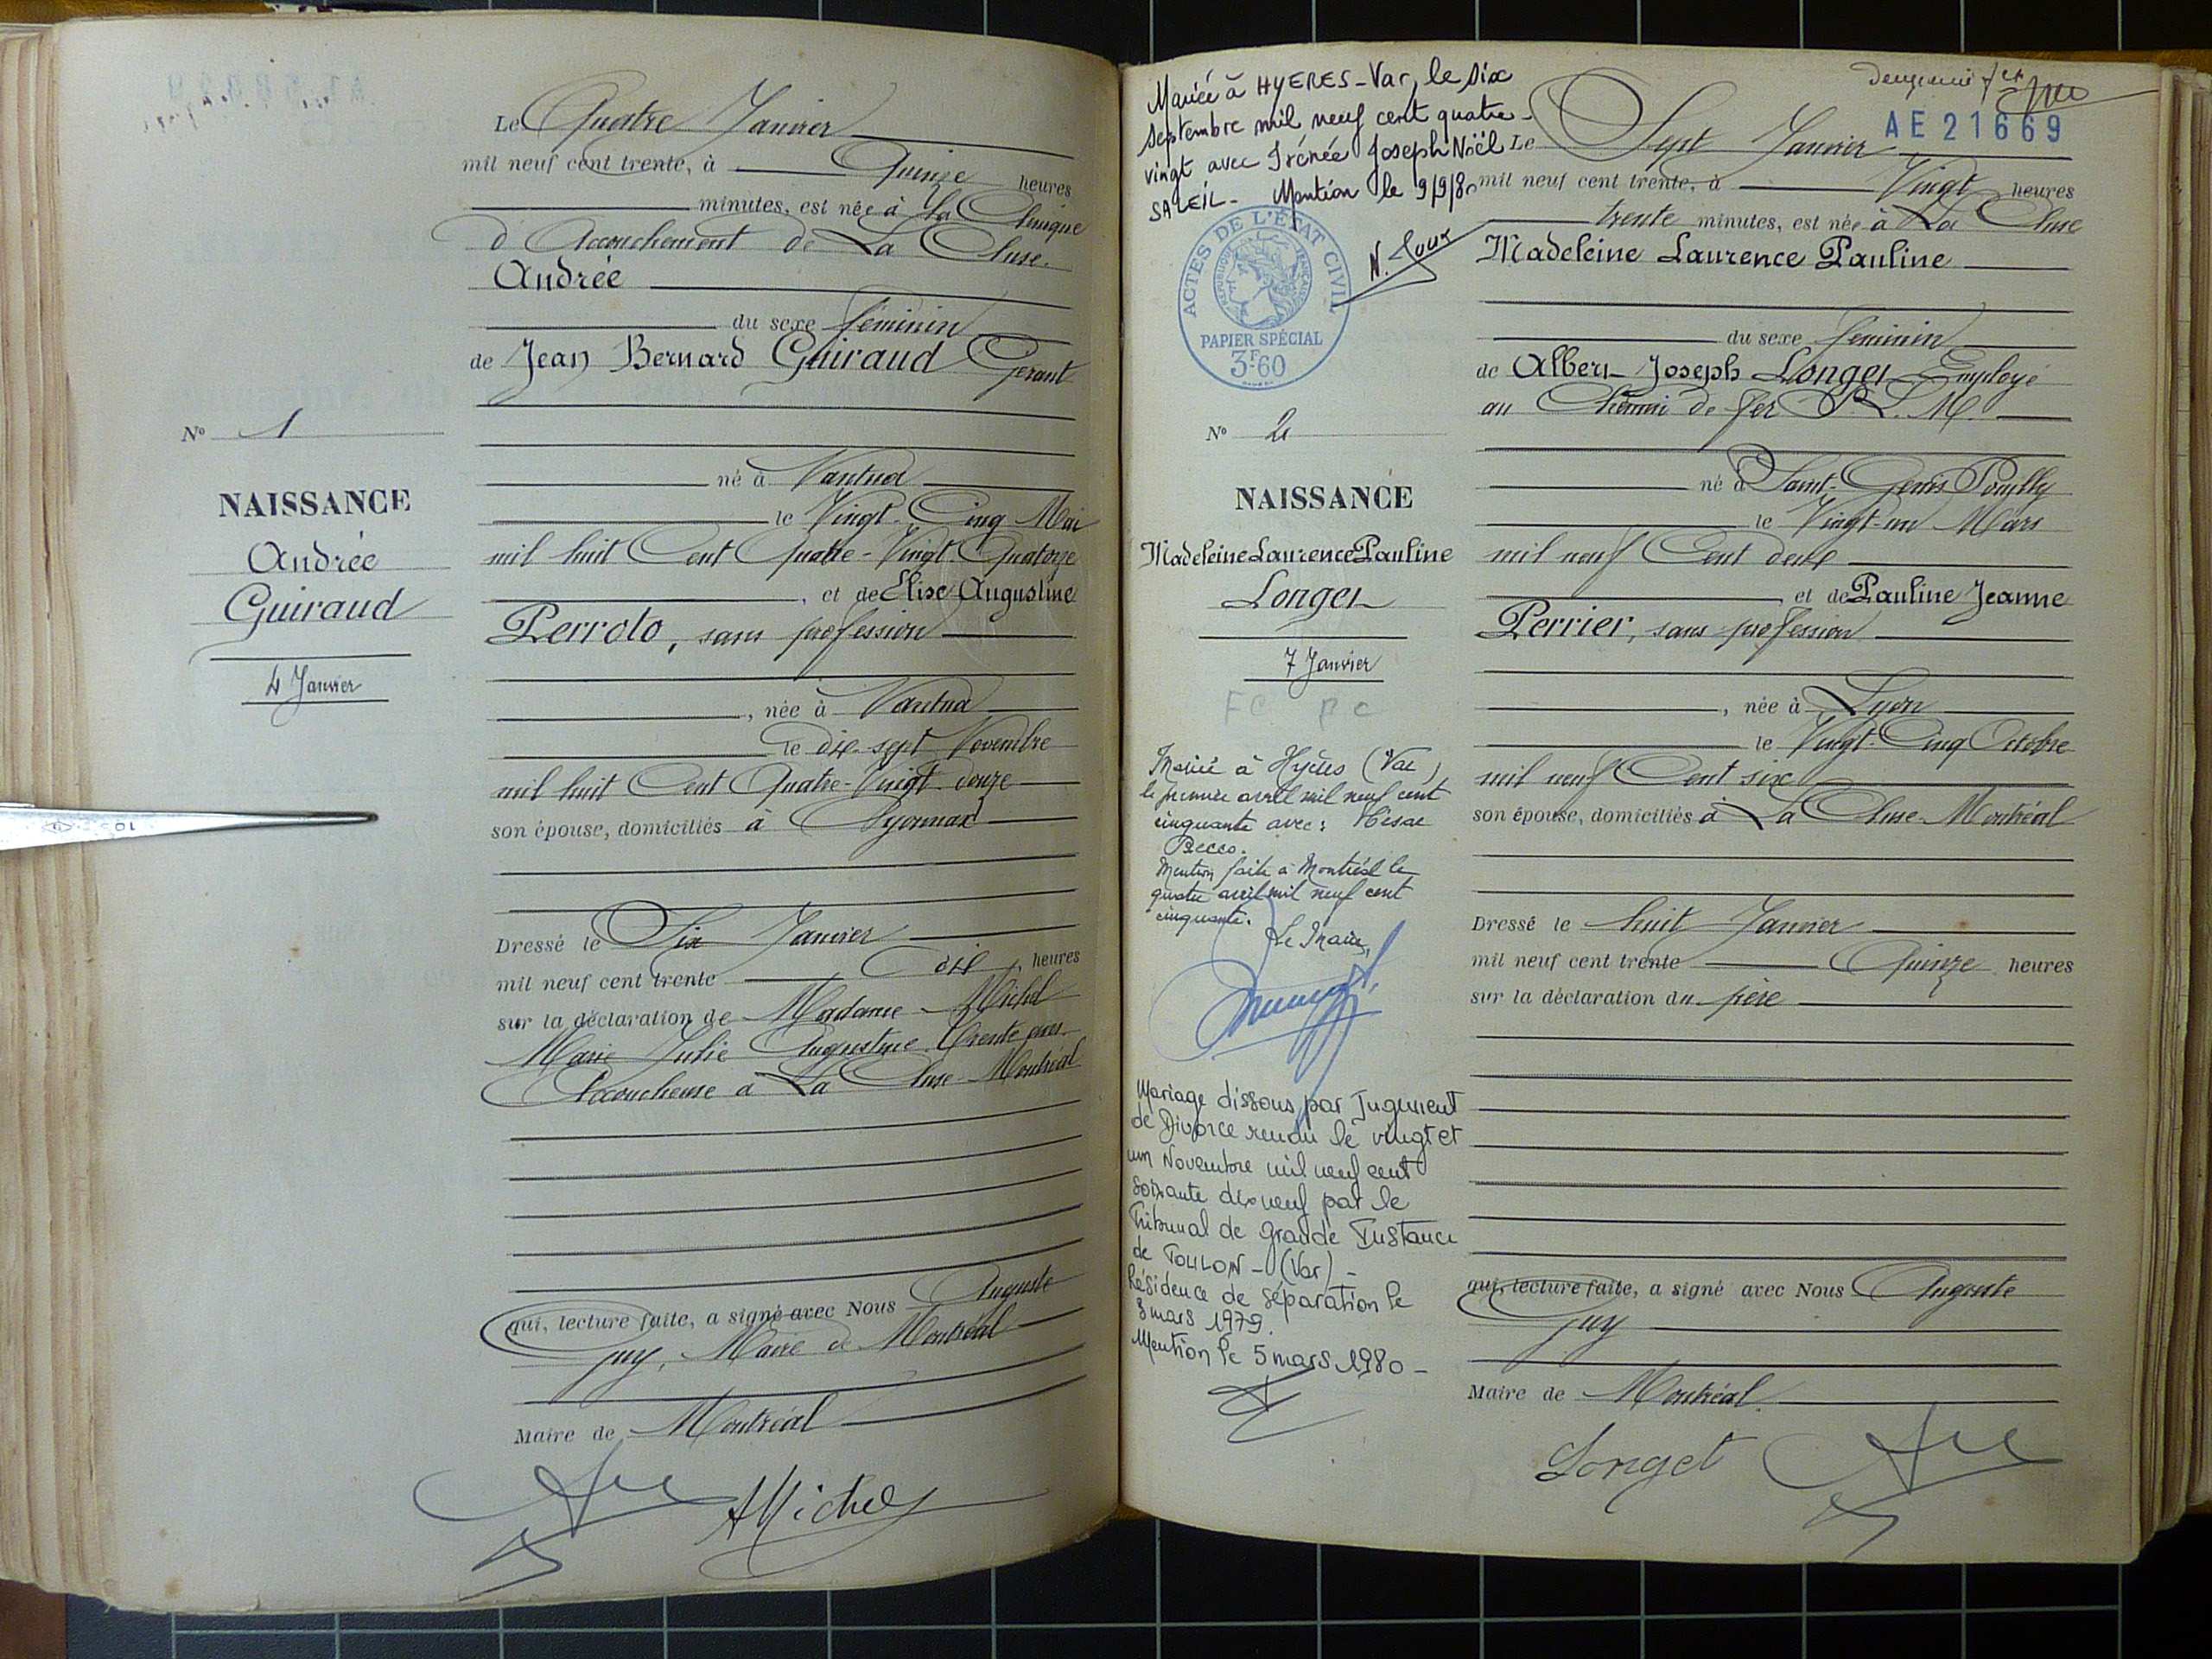 Le Quatre Janvier
mil neuf cent trente, à Quinze heures
minutes, est née à la Clinique
d'Accouchement de La Cluse.
Andrée
du sexe féminin
de Jean Bernard Guiraud Gérant
né à Nantua
le Vingt-Cinq Mai
mil huit Cent Quatre-Vingt-Quatorze
, et de Elise Augustine
Perroto, sans profession
, née à Nantua
le dix-sept Novembre
mil huit Cent Quatre-Vingt-douze
son épouse, domiciliés à Oyonnax
Dressé le Six Janvier
mil neuf cent trente dix, heures
sur la déclaration de Madame Michel
Marie Julie Augustine Trente ans
Accoucheuse à La Cluse-Montréal
qui, lecture faite, a signé avec Nous Auguste
Guy, Maire de Montréal
Maire de Montréal
AMichel
No 1
NAISSANCE
Andrée
Guiraud
4 Janvier
105
Mariée à HYERES-Var, le six
septembre mil neuf cent quatre-
vingt avec Irénée Joseph Noël
SALEIL- Mention le 9/9/80
N. Roux
ACTES DE L'ÉTAT CIVIL
RÉPUBLIQUE FRANÇAISE
PAPIER SPÉCIAL
3F60
No 2
NAISSANCE
Madeleine Laurence Pauline
Longet
7 Janvier
FC FC
Marié à Hyères (Var)
le premier avril mil neuf cent
cinquante avec: César
Becco.
Mention faite à Montréal le
quatre avril mil neuf cent
cinquante.
Le Maire,
Mariage dissous par Jugement
de Divorce rendu le vingt et
un Novembre mil neuf cent
soixante dix neuf par le
Tribunal de grande Instance
de TOULON-(Var)-
Résidence de séparation le
8 mars 1979.
Mention le 5 mars 1980-
AE21669
Le Sept Janvier
mil neuf cent trente, à Vingt heures
trente minutes, est née à La Cluse
Madeleine Laurence Pauline
du sexe féminin
de Albert Joseph Longet Employé
au Chemin de fer P.L.M.
né à Saint-Genis Pouilly
le Vingt-un Mars
mil neuf Cent deux
et de Pauline Jeanne
Perrier, sans profession
, née à Lyon
le Vingt-Cinq Octobre
mil neuf Cent six
son épouse, domiciliés à La Cluse-Montréal
Dressé le huit Janvier
mil neuf cent trente Quinze heures
sur la déclaration du père
qui, lecture faite, a signé avec Nous Auguste
Guy
Maire de Montréal.
Longet